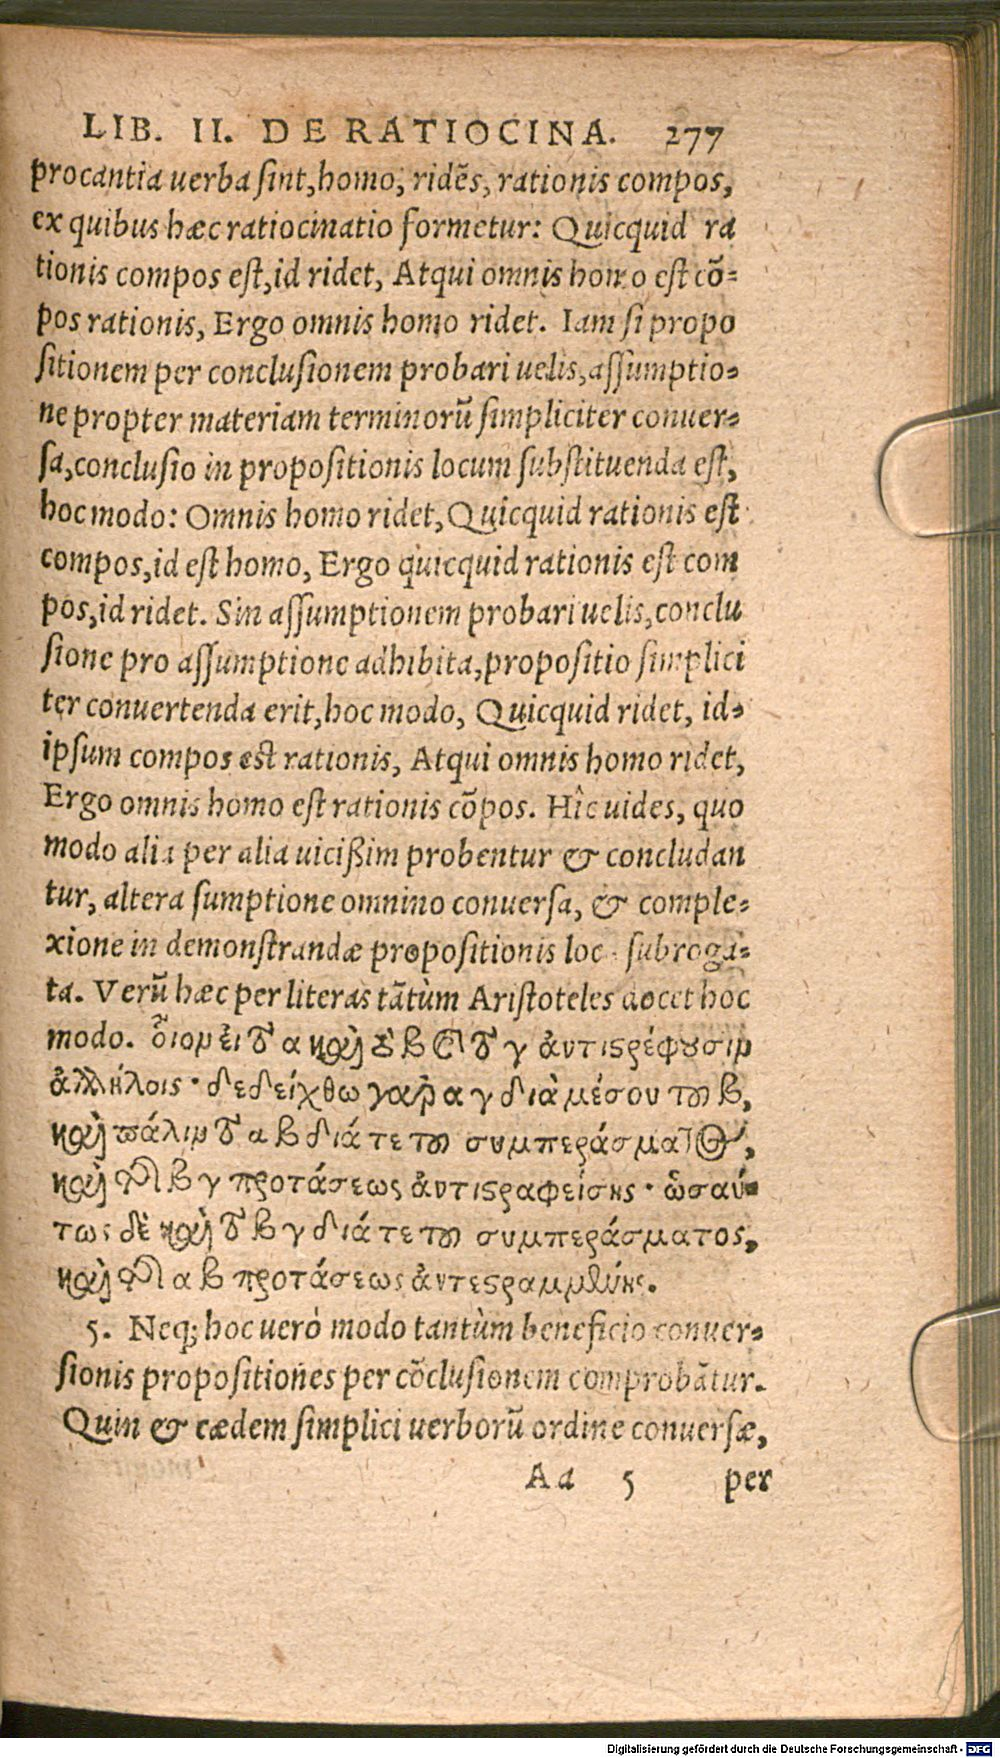 LIB. II. DE RATIOCINA. 277
procantia uerba sint, homo, ridẽs, rationis compos,
ex quibus hæc ratiocinatio formetur: Quicquid ra
tionis compos est, id ridet, Atqui omnis homo est cõ-
pos rationis, Ergo omnis homo ridet. Iam si propo
sitionem per conclusionem probari uelis, assumptio-
ne propter materiam terminorũ simpliciter conuer-
sa, conclusio in propositionis locum substituenda est,
hoc modo: Omnis homo ridet, Quicquid rationis est
compos, id est homo, Ergo quicquid rationis est com
pos, id ridet. Sin assumptionem probari uelis, conclu
sione pro assumptione adhibita, propositio simplici
ter conuertenda erit, hoc modo, Quicquid ridet, id-
ipsum compos est rationis, Atqui omnis homo ridet,
Ergo omnis homo est rationis cõpos. Hîc uides, quo
modo alia per alia uicißim probentur & concludan
tur, altera sumptione omnino conuersa, & comple-
xione in demonstrandæ propositionis loc subroga-
ta. Verũ hæc per literas tãtùm Aristoteles docet hoc
modo. οἷον εἰ τὸ α καὶ τὸ β καὶ τὸ γ ἀντιστρέφουσιν
ἀλλήλοις· δεδείχθω γὰρ α γ διὰ μέσου τοῦ β,
καὶ πάλιν τὸ α β διά τε τοῦ συμπεράσματος,
καὶ τῆς β γ προτάσεως ἀντιστραφείσης· ὡσαύ-
τως δὲ καὶ τὸ β γ διά τε τοῦ συμπεράσματος,
καὶ τῆς α β προτάσεως ἀντεστραμμένης.
5. Neq; hoc uerò modo tantùm beneficio conuer-
sionis propositiones per cõclusionem comprobãtur.
Quin & eædem simplici uerborũ ordine conuersæ,
Aa 5 per
Digitalisierung gefördert durch die Deutsche Forschungsgemeinschaft - DFG